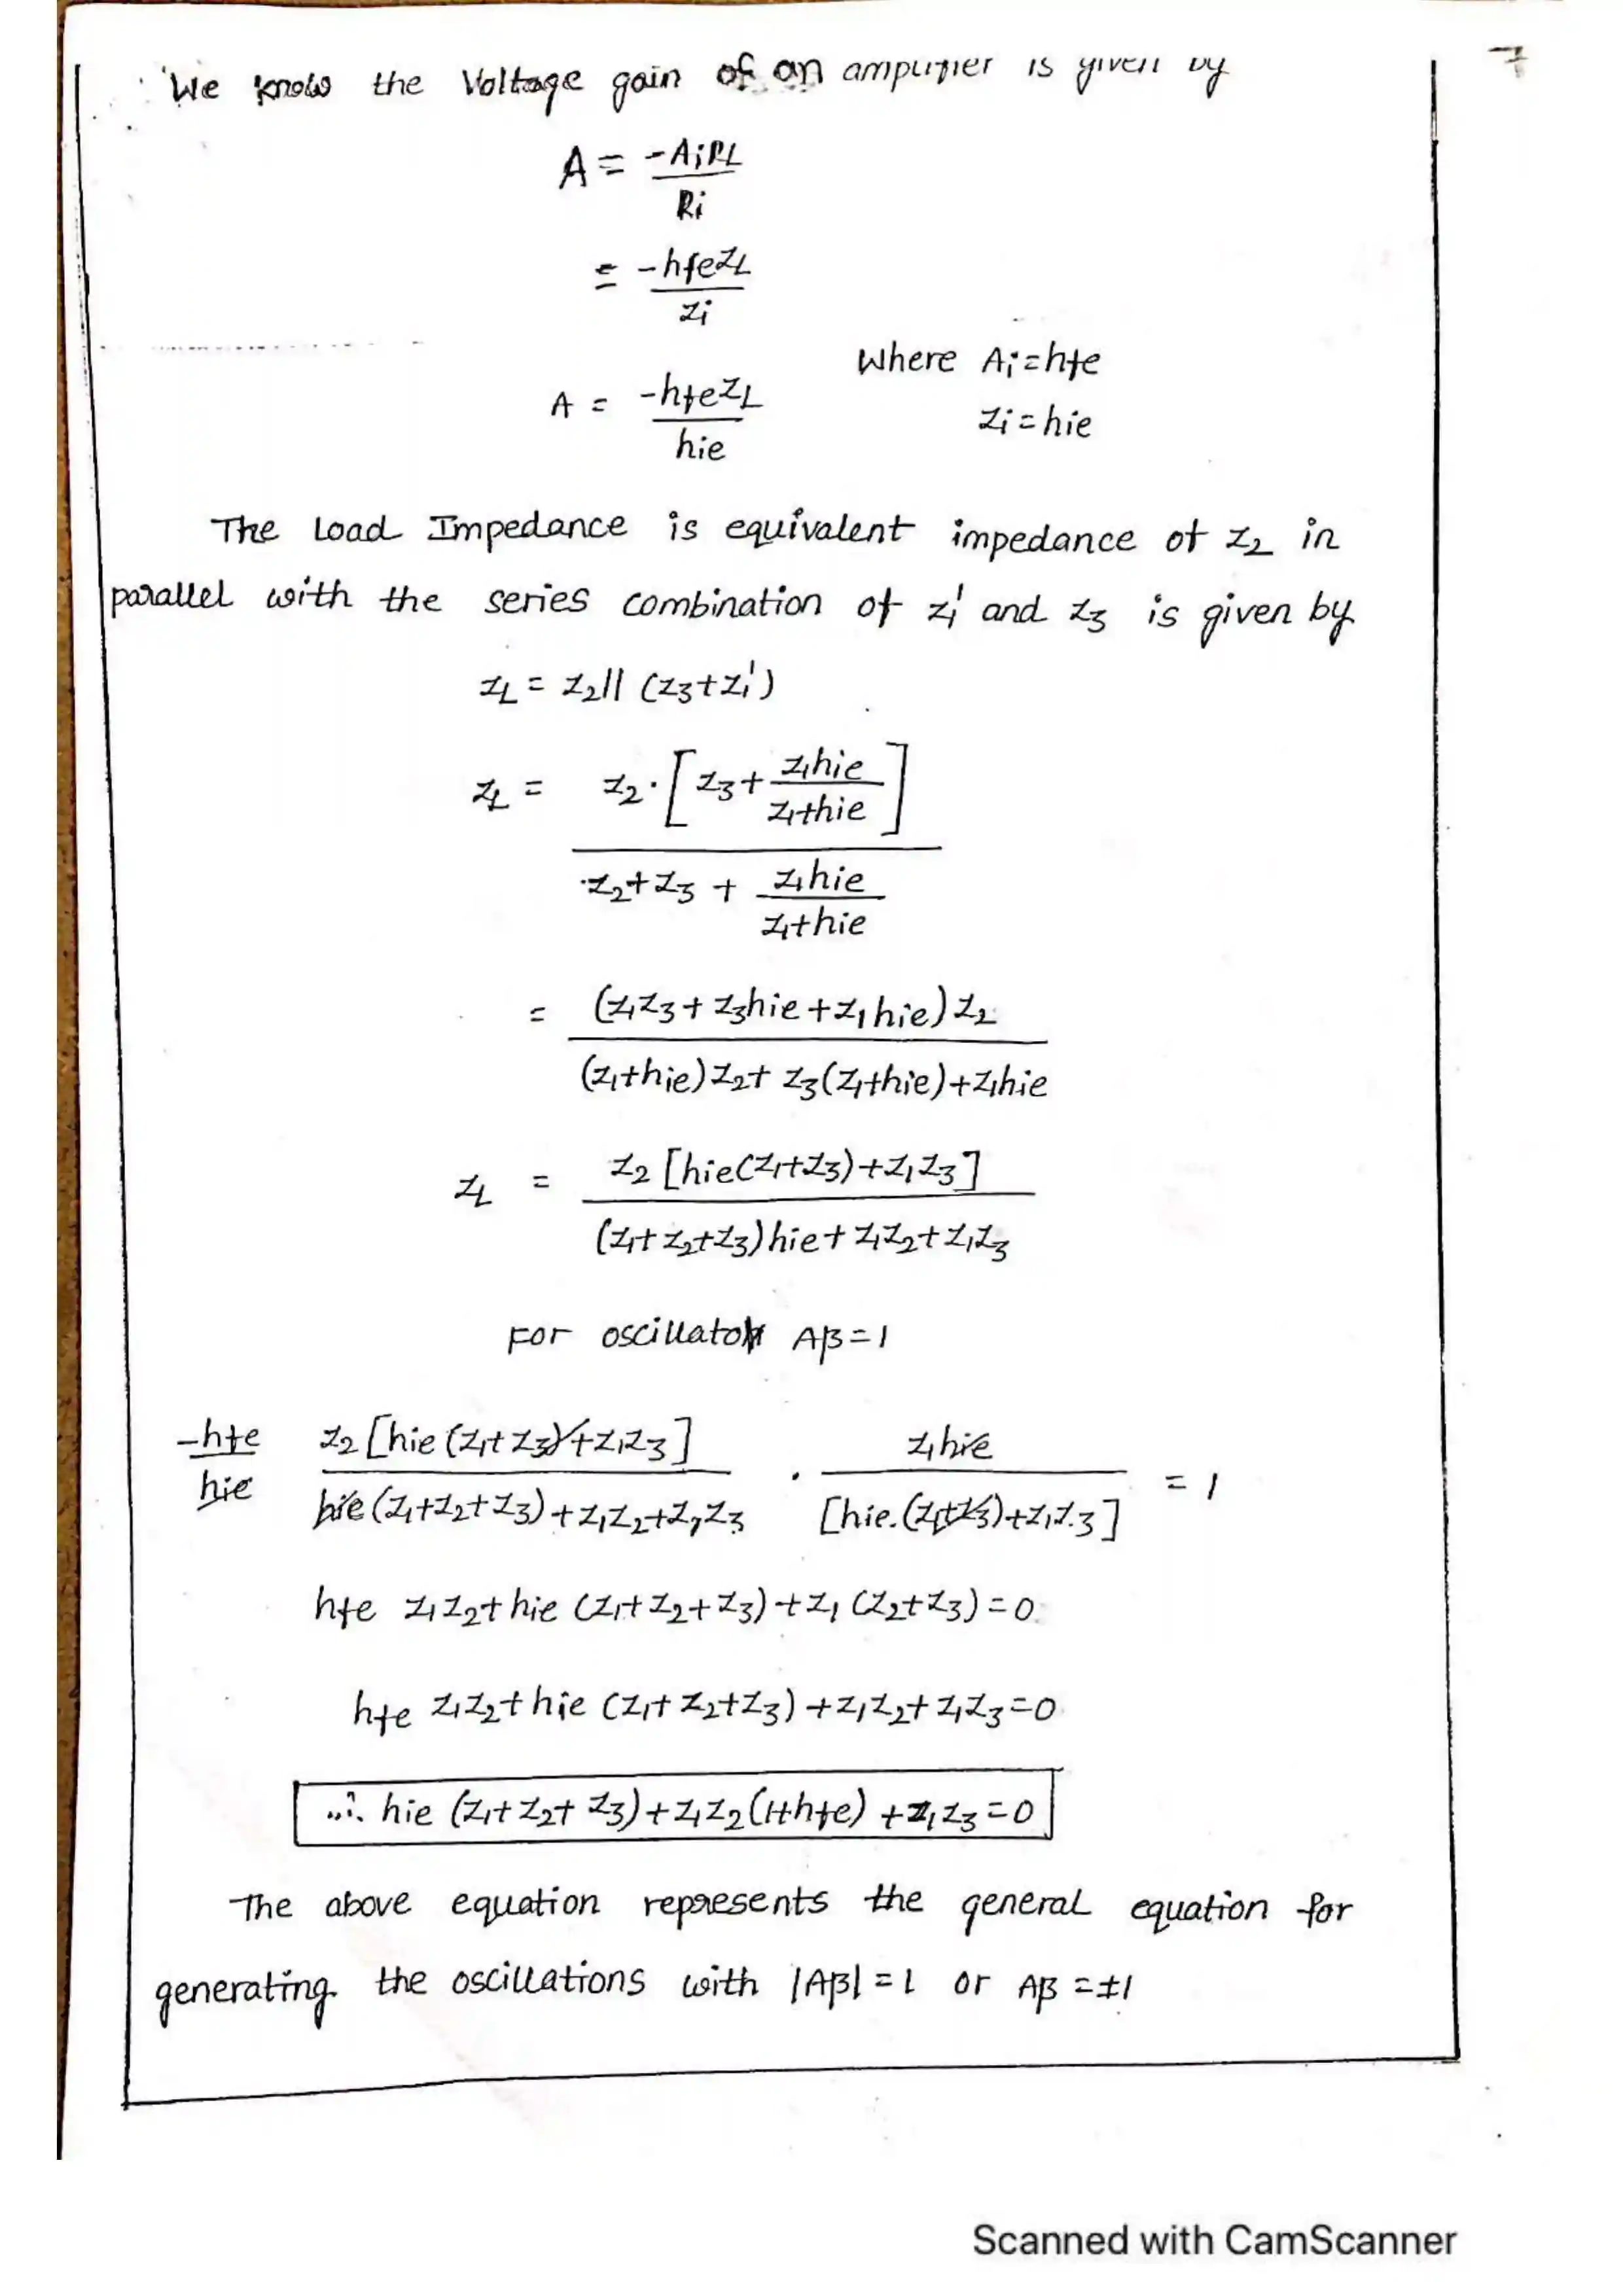 We know the Voltage gain of an amplifier is given by
7
A = -AiRL / Ri
= -hfeZL / Zi
Where Ai=hfe
A = -hfeZL / hie
Zi=hie
The Load Impedance is equivalent impedance of Z2 in
parallel with the series combination of Zi' and Z3 is given by
ZL = Z2ll (Z3+Zi')
ZL = Z2.[Z3+ Z1hie / Z1+hie] / Z2+Z3 + Z1hie / Z1+hie
= (Z1Z3+Z3hie+Z1hie)Z2 / (Z1+hie)Z2+ Z3(Z1+hie)+Z1hie
ZL = Z2 [hie(Z1+Z3)+Z1Z3] / (Z1+Z2+Z3)hie+Z1Z2+Z1Z3
For oscillator Aβ=1
-hfe / hie Z2[hie(Z1+Z3)+Z1Z3] / hie(Z1+Z2+Z3)+Z1Z2+Z1Z3 . Z1hie / [hie.(Z1+Z3)+Z1Z3] = 1
hfe Z1Z2+hie (Z1+Z2+Z3)+Z1 (Z2+Z3)=0
hfe Z1Z2+hie (Z1+Z2+Z3)+Z1Z2+Z1Z3=0
∴ hie (Z1+Z2+Z3)+Z1Z2(1+hfe)+Z1Z3=0
The above equation represents the general equation for
generating the oscillations with |Aβ|=1 or Aβ =±1
Scanned with CamScanner